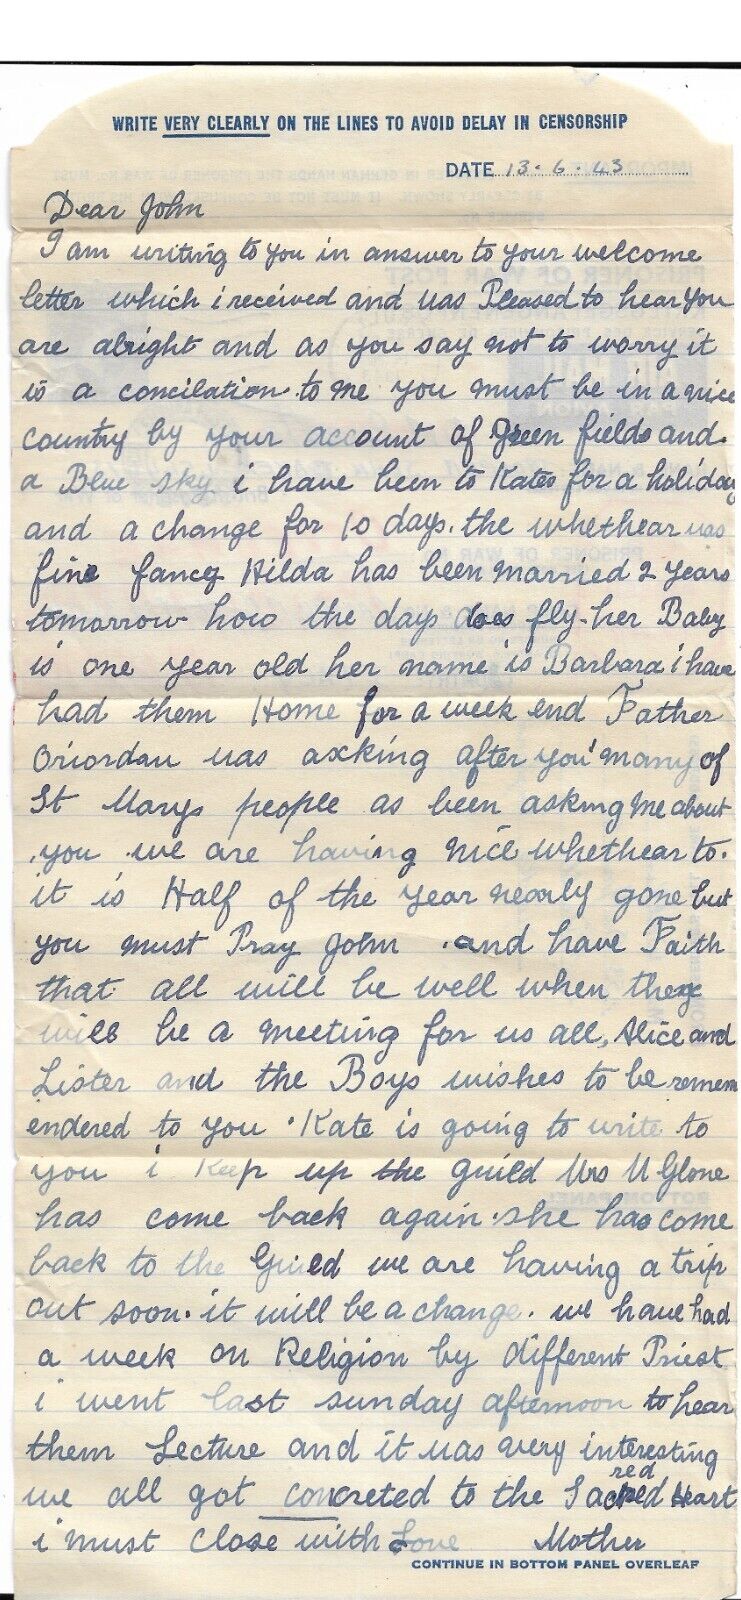 WRITE VERY CLEARLY ON THE LINES TO AVOID DELAY IN CENSORSHIP
DATE 13.6.43
Dear John
I am writing to you in answer to your welcome
letter which i received and uas Pleased to hear you
are alright and as you say not to worry it
is a concilation to me you must be in a nice
country by your account of Green fields and
a Blue sky i have been to Kates for a holiday
and a change for 10 days. the whethear uas
fine fancy Hilda has been married 2 years
tomorrow how the days does fly. her Baby
is one year old her name is Barbara i have
had them Home for a week end Father
Oriordan uas axking after you many of
St Marys people as been asking me about
you we are having nice whethear to.
it is Half of the year nearly gone but
you must Pray John and have Faith
that all will be well when they
will be a meeting for us all, Alice and
Lister and the Boys wishes to be remem
endered to you. Kate is going to write to
you i Keep up the guild Mrs M Glone
has come back again. she has come
back to the Guild we are having a trip
out soon. it will be a change. we have had
a week on Religion by different Priest
i went last sunday afternoon to hear
them Lecture and it uas very interesting
red
we all got concreted to the Sacred Heart
i must close with Love Mother
CONTINUE IN BOTTOM PANEL OVERLEAF